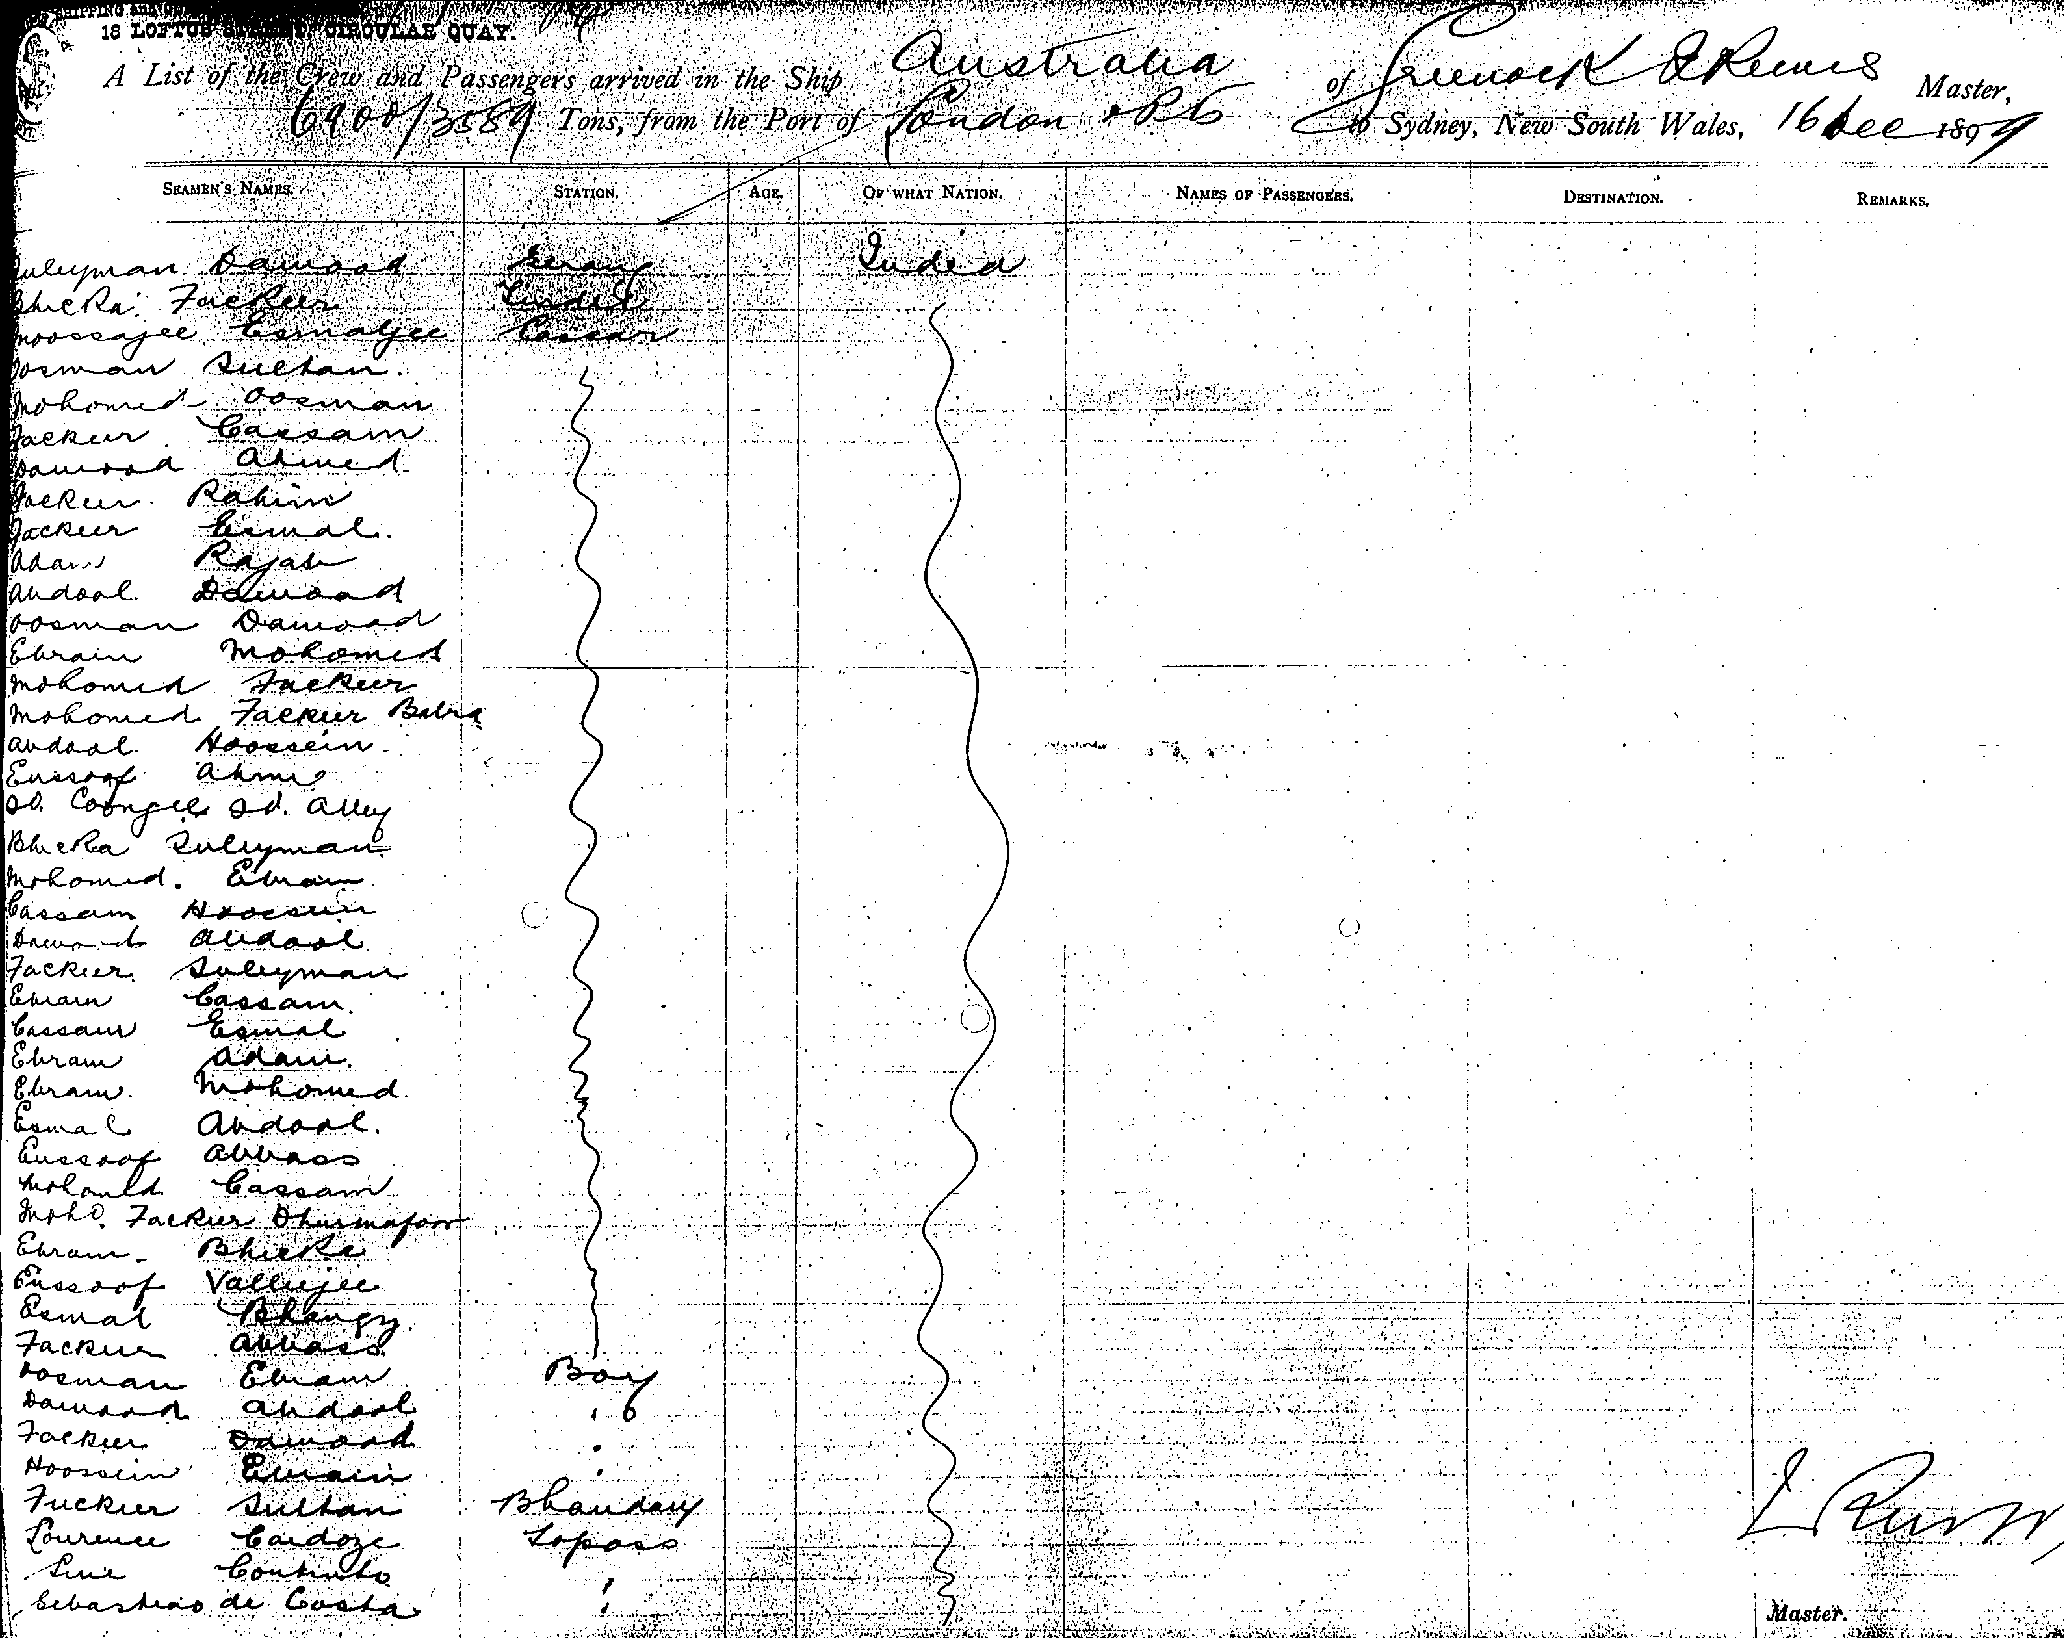 18 LOFTUS STREET, CIRCULAR QUAY.
A List of the Crew and Passengers arrived in the Ship Australia of Greenock Master,
6900/3589 Tons, from the Port of London to Sydney, New South Wales, 16 Dec 1899
SEAMEN'S NAMES. STATION. AGE. OF WHAT NATION. NAMES OF PASSENGERS. DESTINATION. REMARKS.
Suleyman Dawood Serang India
Bhicka Fackeer Tindel
Moossajee Esmaljee Cassar
Oosman Sultan.
Mohomed Oosman
Fackeer Cassam
Dawood Ahmed
Fackeer Rahim
Fackeer Esmal.
Adam Rajab
Abdool Dawood
Oosman Dawood
Ebraim Mohomed
Mohomed Fackeer
Mohomed Fackeer Baba
Abdool Hoossein
Eussoof Ahmed
Sd. Sd. Alley
Bhicka Suleyman
Mohomed. Ebram
Cassam Hoossein
Dawood Abdool
Fackeer Suleyman
Ebram Cassam
Cassam Esmal
Ebram Adam.
Ebram Mohomed
Esmal Abdool.
Eussoof Abbass
Mohomed Cassam
Mohd. Fackeer
Ebram Bhicka
Eussoof Valleyjee
Esmal
Fackeer Abbass
Oosman Ebram Boy
Dawood Abdool "
Fackeer Dawood "
Hoossein Ebraim "
Fuckeer Sultan Bhandary
Lourence Cardoze Topass
Coutinho "
Sebastiao de Costa "
Master.